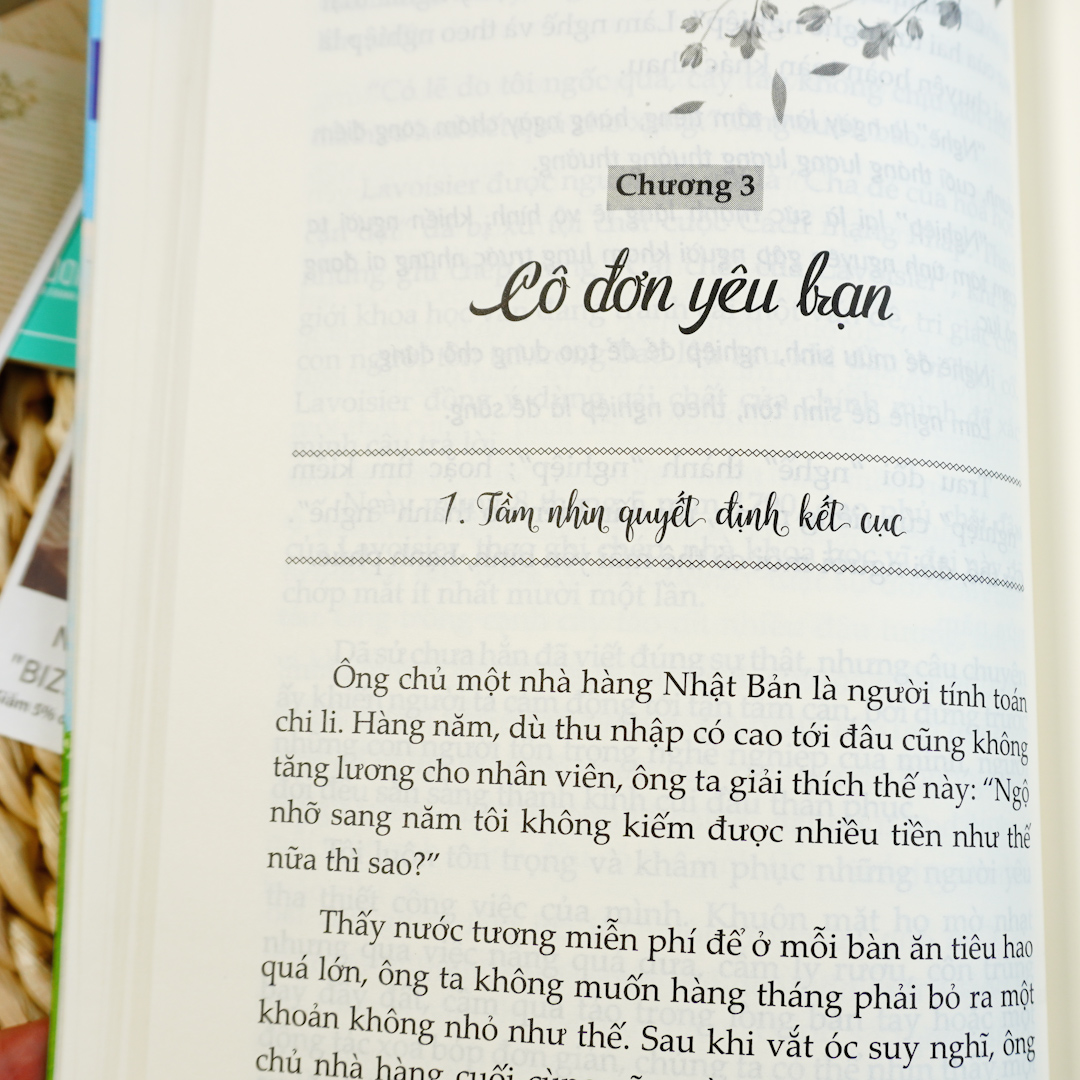 Chương 3
Cô đơn yêu bạn
1. Tầm nhìn quyết định kết cục
Ông chủ một nhà hàng Nhật Bản là người tính toán
chi li. Hàng năm, dù thu nhập có cao tới đâu cũng không
tăng lương cho nhân viên, ông ta giải thích thế này: “Ngộ
nhỡ sang năm tôi không kiếm được nhiều tiền như thế
nữa thì sao?”
Thấy nước tương miễn phí để ở mỗi bàn ăn tiêu hao
quá lớn, ông ta không muốn hàng tháng phải bỏ ra một
khoản không nhỏ như thế. Sau khi vắt óc suy nghĩ, ông
chủ nhà hàng cuối cùng
"BIZ
Giảm 5%